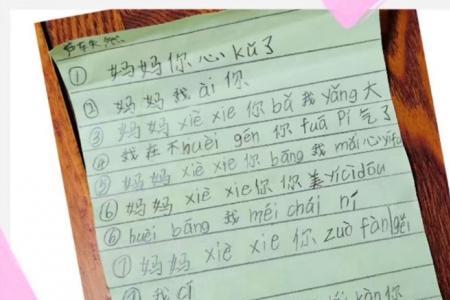 ①妈妈你心kǔ了
②妈妈我ài你
③妈妈xiè xie你bǎ我yǎng大
④我在不huèi gén你fuā Pí气了
⑤妈妈xiè xie你bāng我mǎi心yīfu
⑥妈妈xiè xie你你yícìdōu
⑥huèi bāng我méi chái ní
⑦妈妈xiè xie你zuò fàn gěi
我